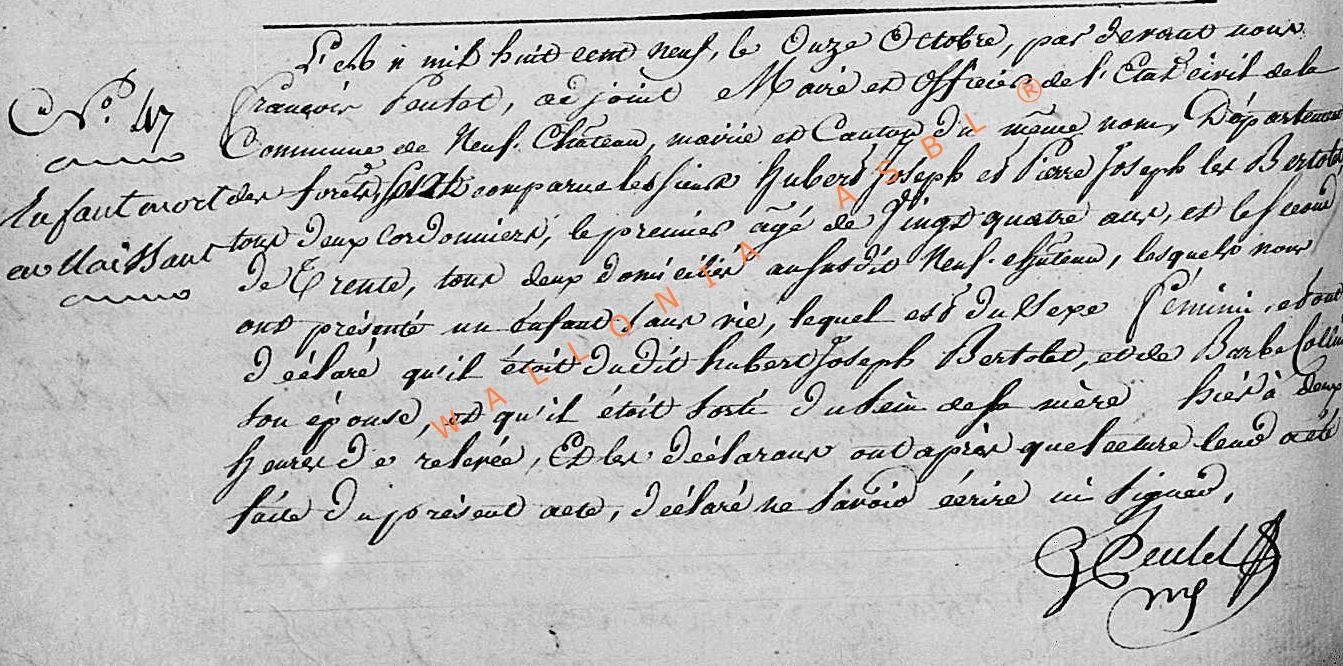 L'an mil huit cent neuf, le Onze Octobre, par devant nous
N.° 47
françois Peulet, adjoint Maire et officier de l'Etat civil de la
Commune de Neuf-Château, mairie et Canton du même nom, Département
Enfant mort
des forêts, sont comparu les sieurs hubert Joseph et Pierre Joseph les Bertolet
en Naissant
tous deux Cordonniers, le premier âgé de Vingt quatre ans, et le second
de Trente, tous deux domiciliés au susdit Neuf-château, lesquels nous
ont présenté un Enfant sans vie, lequel est du Sexe féminin, et ont
déclaré qu'il étoit dudit hubert Joseph Bertolet, et de Barbe Collin
son épouse, et qu'il étoit sorti du sein de sa mère hier à deux
heures de relevée, Et les déclarans ont après que lecture leur a été
faite du présent acte, déclaré ne savoir écrire ni signer,
Peulet
WALLONIA ASBL ®